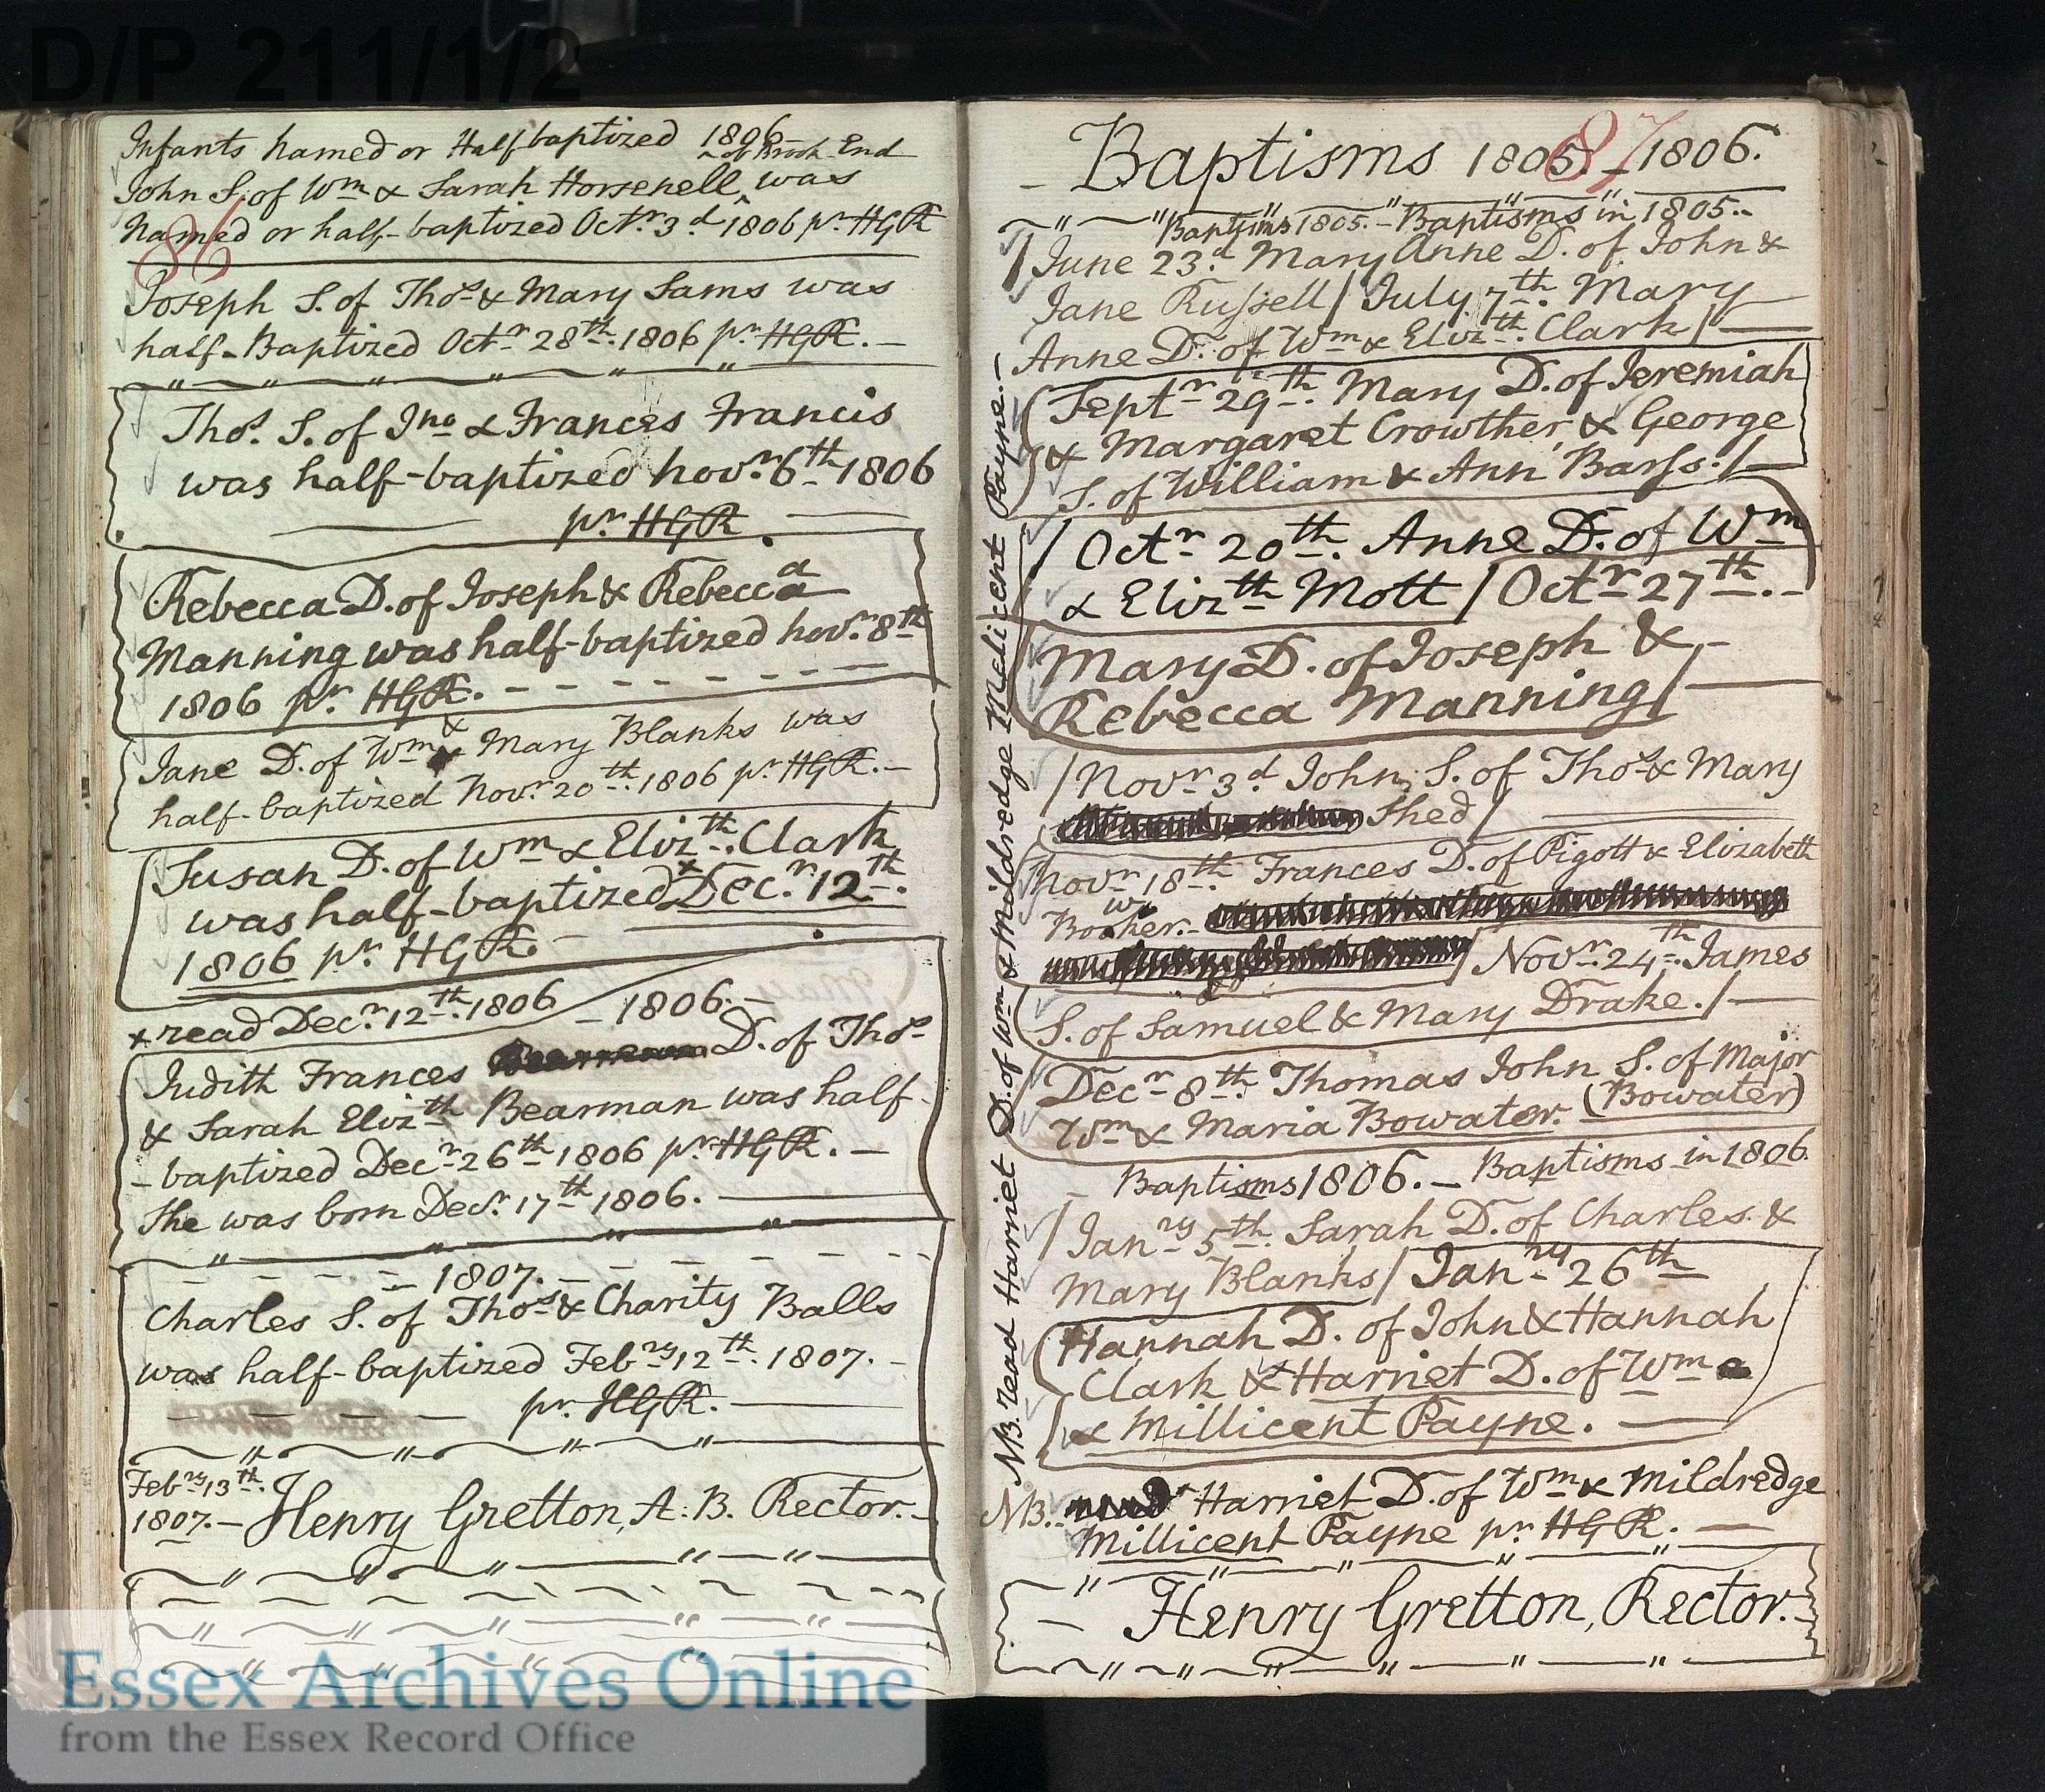 D/P 211/1/2
Infants named or Half baptized 1806
of Brook End
John S. of Wm & Sarah Horsenell ^ was
named or half-baptized Octr. 3d 1806 pr. HGR
86
Joseph S. of Thos & Mary Sams was
half-Baptized Octr 28th. 1806 pr HGR. –
Thos. S. of Jno & Frances Francis
was half-baptized Novr. 6th 1806
pr HGR.
Rebecca D. of Joseph & Rebecca
Manning was half-baptized Novr. 8th
1806 pr HGR.
Jane D. of Wm & Mary Blanks was
half-baptized Novr 20th. 1806 pr HGR. –
Susan D. of Wm & Elizth. Clark
was half-baptized x Decr. 12th.
1806 pr. HGR. –
x read Decr. 12th. 1806 – 1806. –
Judith Frances D. of Thos
& Sarah Elizth Bearman was half-
- baptized Decr 26th 1806 pr HGR. –
She was born Decr. 17th 1806.
1807. –
Charles S. of Thos & Charity Balls
was half-baptized Febry 12th. 1807. –
pr. HGR.
Febry 13th.
1807. – Henry Gretton, A. B. Rector. –
87
– Baptisms 1805. – 1806.
Baptisms 1805. – Baptisms in 1805. –
/ June 23d. Mary Anne D. of John &
Jane Russell / July 7th. Mary
Anne D. of Wm & Elizth. Clark /
Septr 29th. Mary D. of Jeremiah
& Margaret Crowther, & George
S. of William & Ann Barss. /
/ Octr 20th. Anne D. of Wm
& Elizth Mott / Octr 27th. –
Mary D. of Joseph & –
Rebecca Manning /
/ Novr 3d John, S. of Thos & Mary
Shed /
Novr 18th. Frances D. of Pigott & Elizabeth
Booker. –
/ Novr. 24th. James
S. of Samuel & Mary Drake. /
/ Decr 8th. Thomas John S. of Major
Wm & Maria Bowater. (Bowater)
– Baptisms 1806. – Baptisms in 1806.
/ Janry 5th. Sarah D. of Charles &
Mary Blanks / Janry 26th
Hannah D. of John & Hannah
Clark & Harriet D. of Wm
& Millicent Payne. –
NB. Harriet D. of Wm & Mildredge
Millicent Payne pr HGR. –
– Henry Gretton, Rector. –
NB. read Harriet D. of Wm & Mildredge Medicent Payne. –
Essex Archives Online
from the Essex Record Office